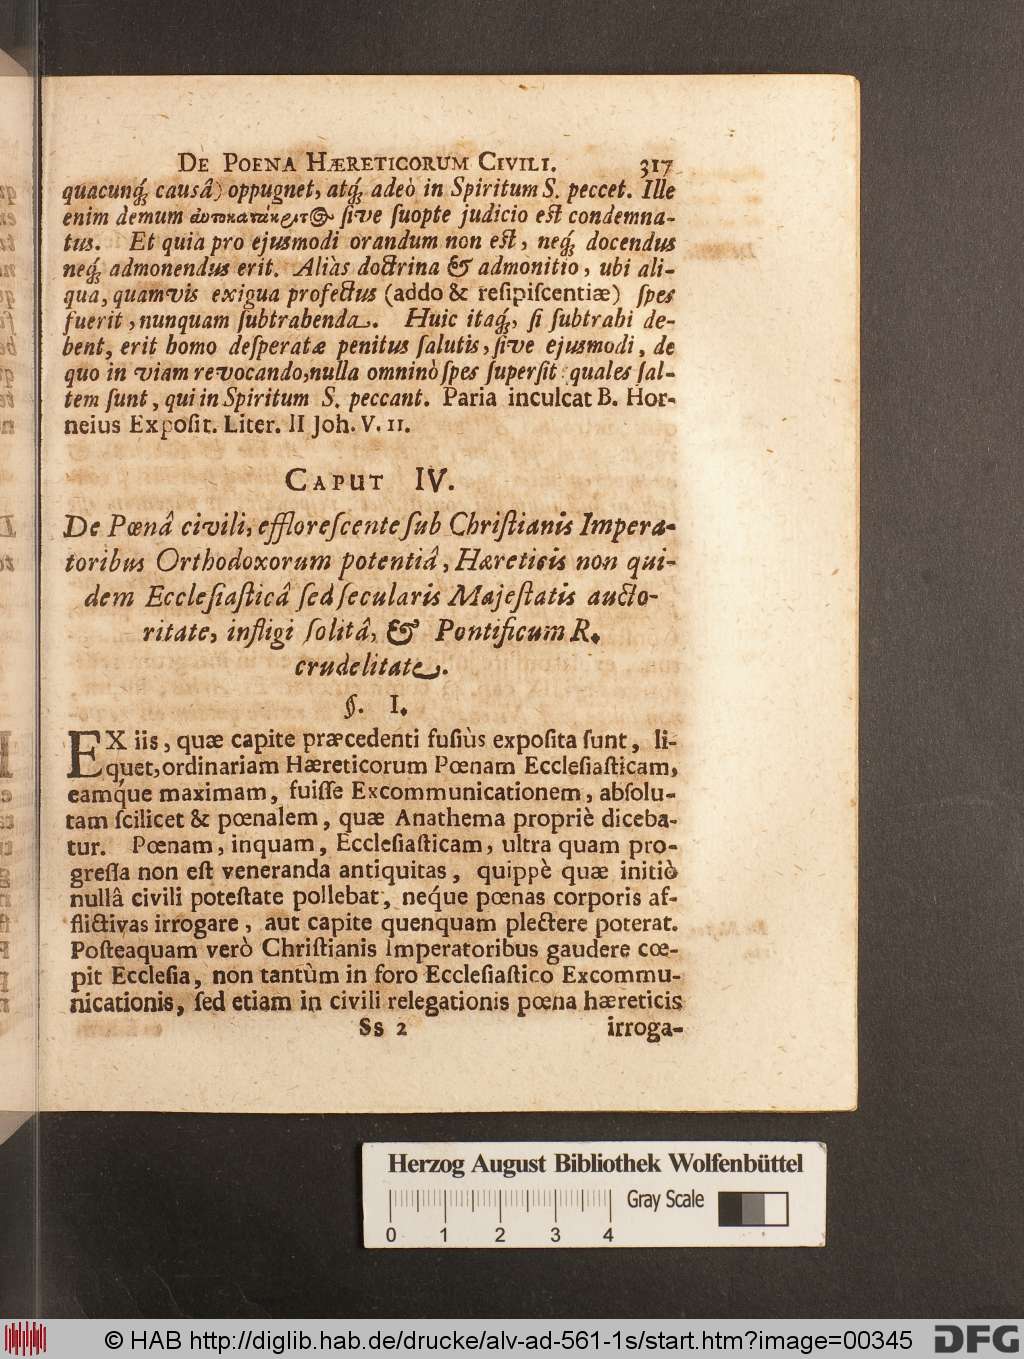 DE POENA HÆRETICORUM CIVILI. 317
quacunq́; causâ) oppugnet, atq́; adeò in Spiritum S. peccet. Ille
enim demum αυτοκατάκριτ  ſive ſuopte judicio eſt condemna-
tus. Et quia pro ejusmodi orandum non eſt, neq́; docendus
neq́; admonendus erit. Aliàs doctrina & admonitio, ubi ali-
qua, quamvis exigua profectus (addo & reſipiſcentiæ) ſpes
fuerit, nunquam ſubtrahenda. Huic itaq́;, ſi ſubtrahi de-
bent, erit homo deſperatæ penitus ſalutis, ſive ejusmodi, de
quo in viam revocando, nulla omninò ſpes ſuperſit: quales ſal-
tem ſunt, qui in Spiritum S. peccant. Paria inculcat B. Hor-
neius Expoſit. Liter. II Joh. V. 11.
CAPUT IV.
De Pœnâ civili, effloreſcente ſub Chriſtianis Impera-
toribus Orthodoxorum potentiâ, Hæreticis non qui-
dem Eccleſiaſticâ ſed ſecularis Majeſtatis aucto-
ritate, infligi ſolitâ, & Pontificum R.
crudelitate.
§. I.
EX iis, quæ capite præcedenti fuſiùs expoſita ſunt, li-
quet, ordinariam Hæreticorum Pœnam Eccleſiaſticam,
eamq́ue maximam, fuiſſe Excommunicationem, abſolu-
tam ſcilicet & pœnalem, quæ Anathema propriè diceba-
tur. Pœnam, inquam, Eccleſiaſticam, ultra quam pro-
greſſa non eſt veneranda antiquitas, quippè quæ initiò
nullâ civili poteſtate pollebat, neq́ue pœnas corporis af-
flictivas irrogare, aut capite quenquam plectere poterat.
Poſteaquam verò Chriſtianis Imperatoribus gaudere cœ-
pit Eccleſia, non tantùm in foro Eccleſiaſtico Excommu-
nicationis, ſed etiam in civili relegationis pœna hæreticis
Ss 2 irroga-
Herzog August Bibliothek Wolfenbüttel
Gray Scale
0 1 2 3 4
© HAB http://diglib.hab.de/drucke/alv-ad-561-1s/start.htm?image=00345 DFG